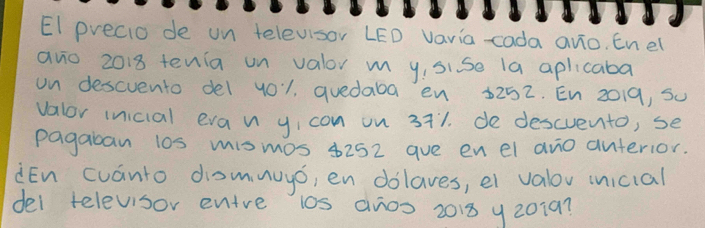 El precio de un televisor LED varía cada año. En el
año 2018 tenía un valor m y, si se la aplicaba
un descuento del 40% quedaba en $252. En 2019, su
valor inicial era n y, con un 37% de descuento, se
pagaban los mismos $252 que en el año anterior.
¿En cuánto disminuyó, en dólares, el valor inicial
del televisor entre los años 2018 y 2019?